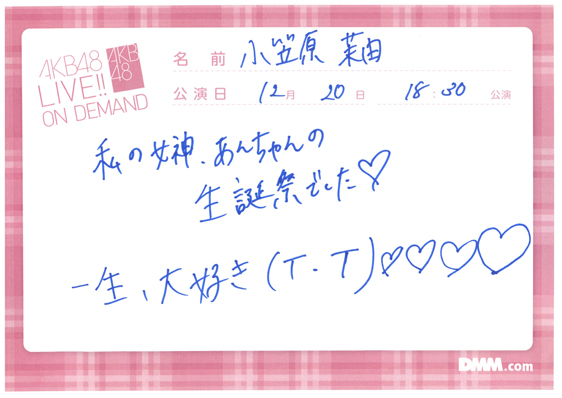 AKB48
LIVE!!
ON DEMAND
AKB
48
名前 小笠原 茉由
公演日 12月 20日 18:30 公演
私の女神、あんちゃんの
生誕祭でした♡
一生、大好き(T.T)♡♡♡♡
DMM.com